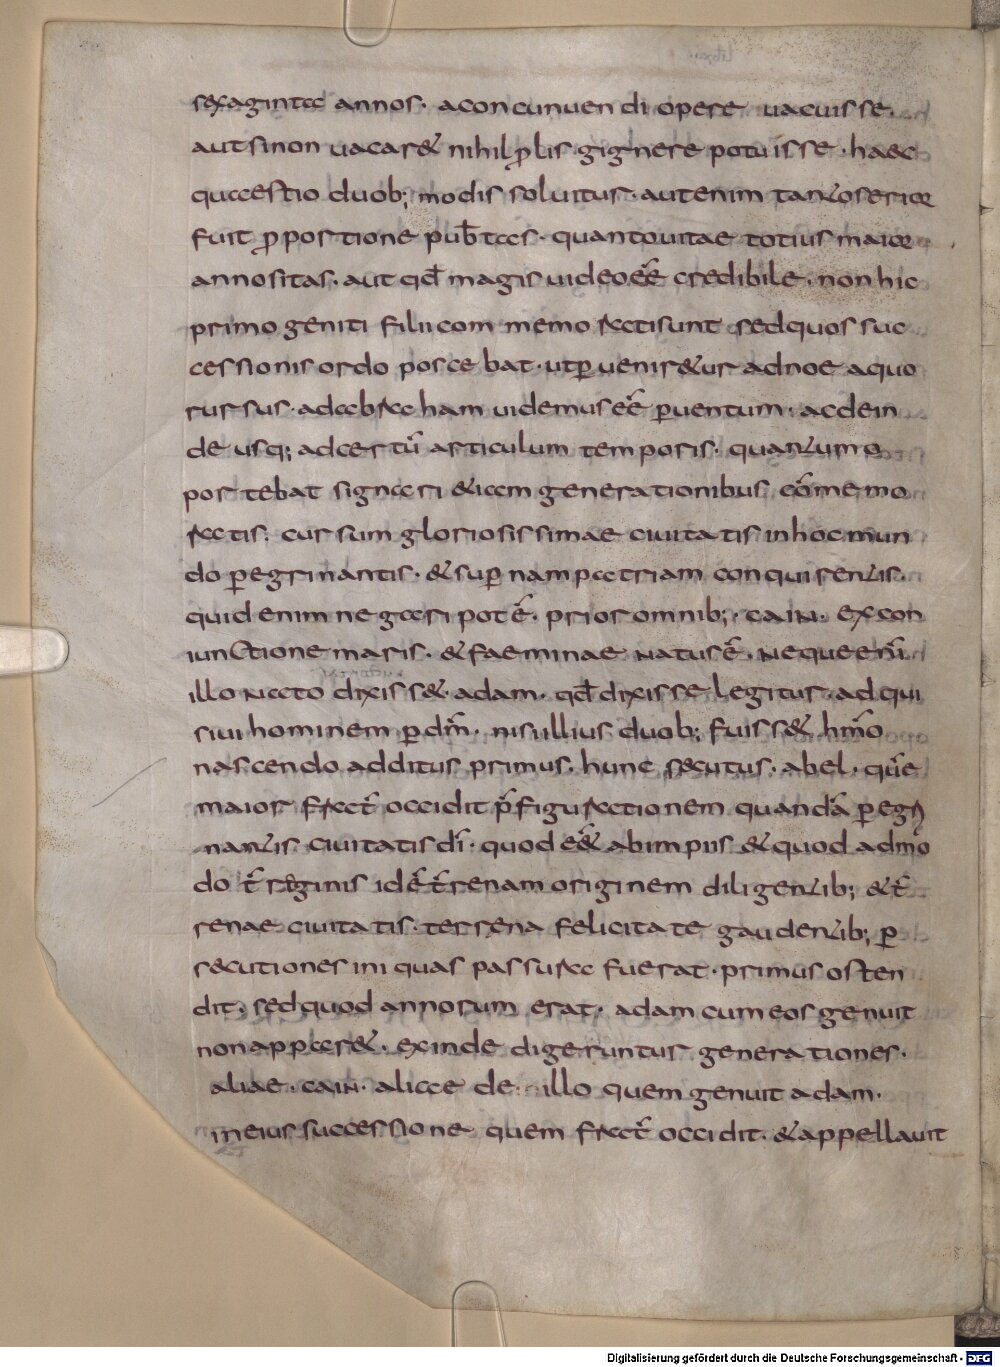 sexaginta annos· aconcunuendi opere uacuisse·
aut sinon uacar& nihil ꝓlis gignere potuisse· haec
quaestio duob; modis soluitur· aut enim tanto serior
fuit ꝓportione pub̄tas· quanto uitae totius maior
annositas· aut qđ magis uideo eē̄ credibile· non hic
primogeniti filii commemorati sunt sed quos suc
cessionis ordo poscebat· ut ꝑuenir&ur ad noe a quo
rursus· ad abraham uidemus eē̄ ꝑuentum· ac dein
de usq; ad certū articulum temporis· quantum o
portebat signari &iam generationibus cōmemo
ratis· cursum gloriosissimae ciuitatis in hoc mun
do ꝑegrinantis· & suꝑnam patriam conquirentis·
quid enim negari potē̄· prior omnib;· cain· ex con
iunctione maris· & faeminae natus ē̄· neque eni͂
illo nato dixiss& adam· qđ dixisse legitur· adqui
siui hominem ꝑ dm̄· nisi illius duob; fuiss& hm̄o
nascendo additus primus· hunc secutus· abel· quē
maior frat̄ occidit p̄figurationem quandā ꝑegri
nantis ciuitatis dī· quod eē̄& ab impiis & quod admo
do t̄rriginis idē̄ t̄renam originem diligentib; & t̄
renae ciuitatis· terrena felicitate gaudentib; ꝑ
secutiones iniquas passura fuerat· primus osten
dit· sed quod annorum erat· adam cum eos genuit
non appar&· exinde digeruntur generationes·
aliae· cain· aliae de illo quem genuit adam·
in eius successione quem frat̄ occidit· & appellauit
Digitalisierung gefördert durch die Deutsche Forschungsgemeinschaft - DFG